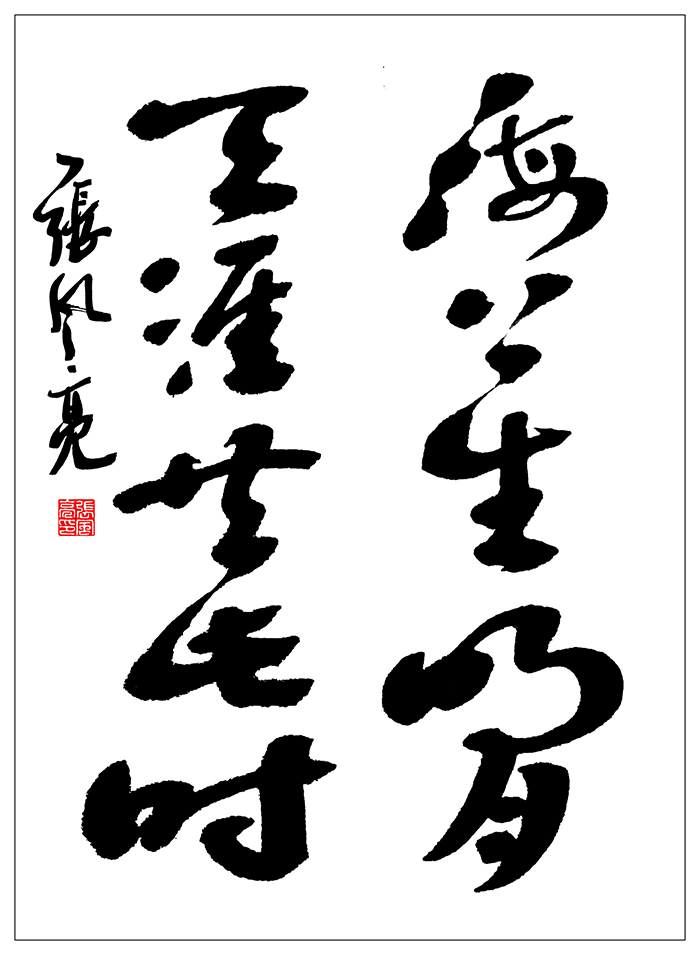 海上生明月
天涯共此时
張风亮
張风亮印